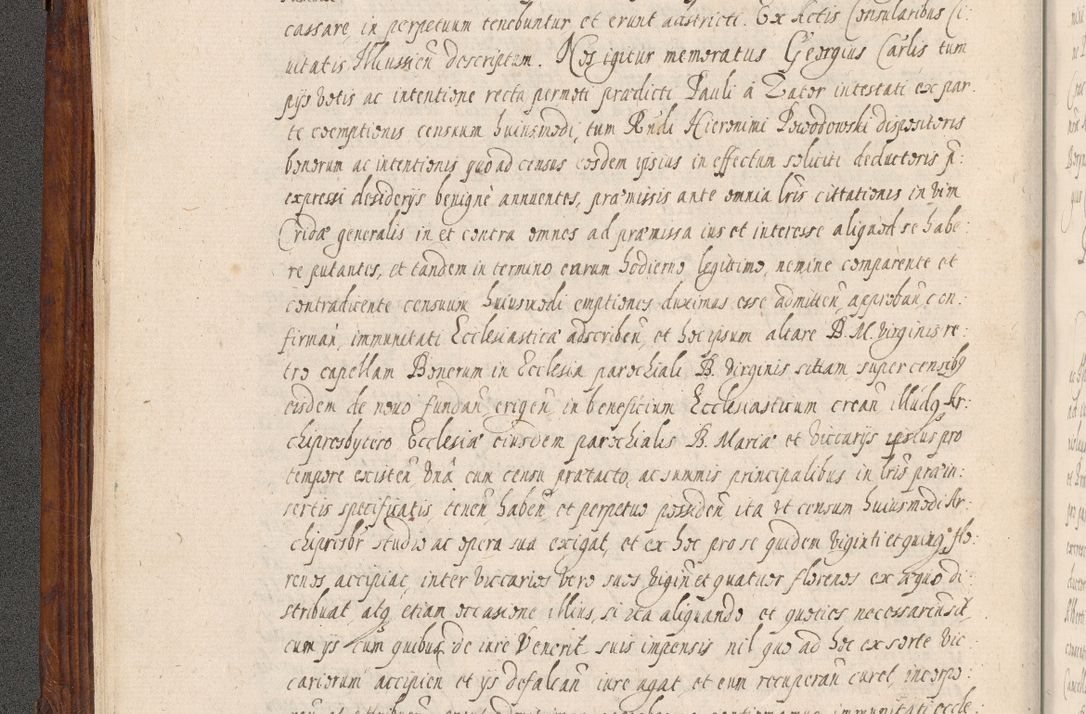 cassare, in perpetuum tenebuntur et erunt adstricti. Ex Actis Consularibus Ci:
uitatis Illkussien̄ descriptum. Nos igitur memoratus Georgius Carlis tum
pijs votis ac intentione recta permoti prædicti Pauli á Zator intestati ex par
te coemptionis censuum huiusmodi, tum Rn̄di Hieronimi Powodowski dispositoris
bonorum ac intentionis quo ad census eosdem ipsius in effectum soliciti deductoris p̄:
expressi desiderijs benignè annuentes, præmissis ante omnia lr̄is cittationis in vim
Cridæ generalis in et contra omnes ad præmissa ius et interesse aliquod se habe:
re putantes, et tandem in termino earum hodierno legittimo, nemine comparente et
contradicente censuum huiusmodi emptiones duximus esse admitten̄, approban̄, con:
firman̄, immunitati Ecclesiasticæ adscriben̄, et hoc ipsum altare B. M. Virginis re:
tro capellam Bonerum in Ecclesia parochiali B. Virginis sitam, super censibꝫ
eisdem de nouo fundan̄ erigen̄, in beneficium Ecclesiasticum crean̄ illudqꝫ Ar:
chipresbytero Ecclesiæ eiusdem parochialis B. Mariæ et viccarijs ipsius pro
tempore existen̄, vnā cum censu prætacto, ac summis principalibus in lr̄is præin:
sertis specificatis, tenen̄, haben̄ et perpetuo possiden̄, ita vt censum huiusmodi Ar:
chipresbr̄ studio ac opera sua exigat, et ex hoc pro se quidem viginti et quinqꝫ flo:
renos, accipiat, inter viccarios vero suos vigin̄ et quatuor florenos ex æquo di:
stribuat atqꝫ etiam occasione illius, si ita aliquando et quoties necessarium sit,
cum ijs cum quibus de iure venerit suis impensis nil quo ad hoc ex sorte vic:
cariorum accipien̄ et ijs defalcan̄ iure agat, et eum recuperan̄ curet, incorpo: